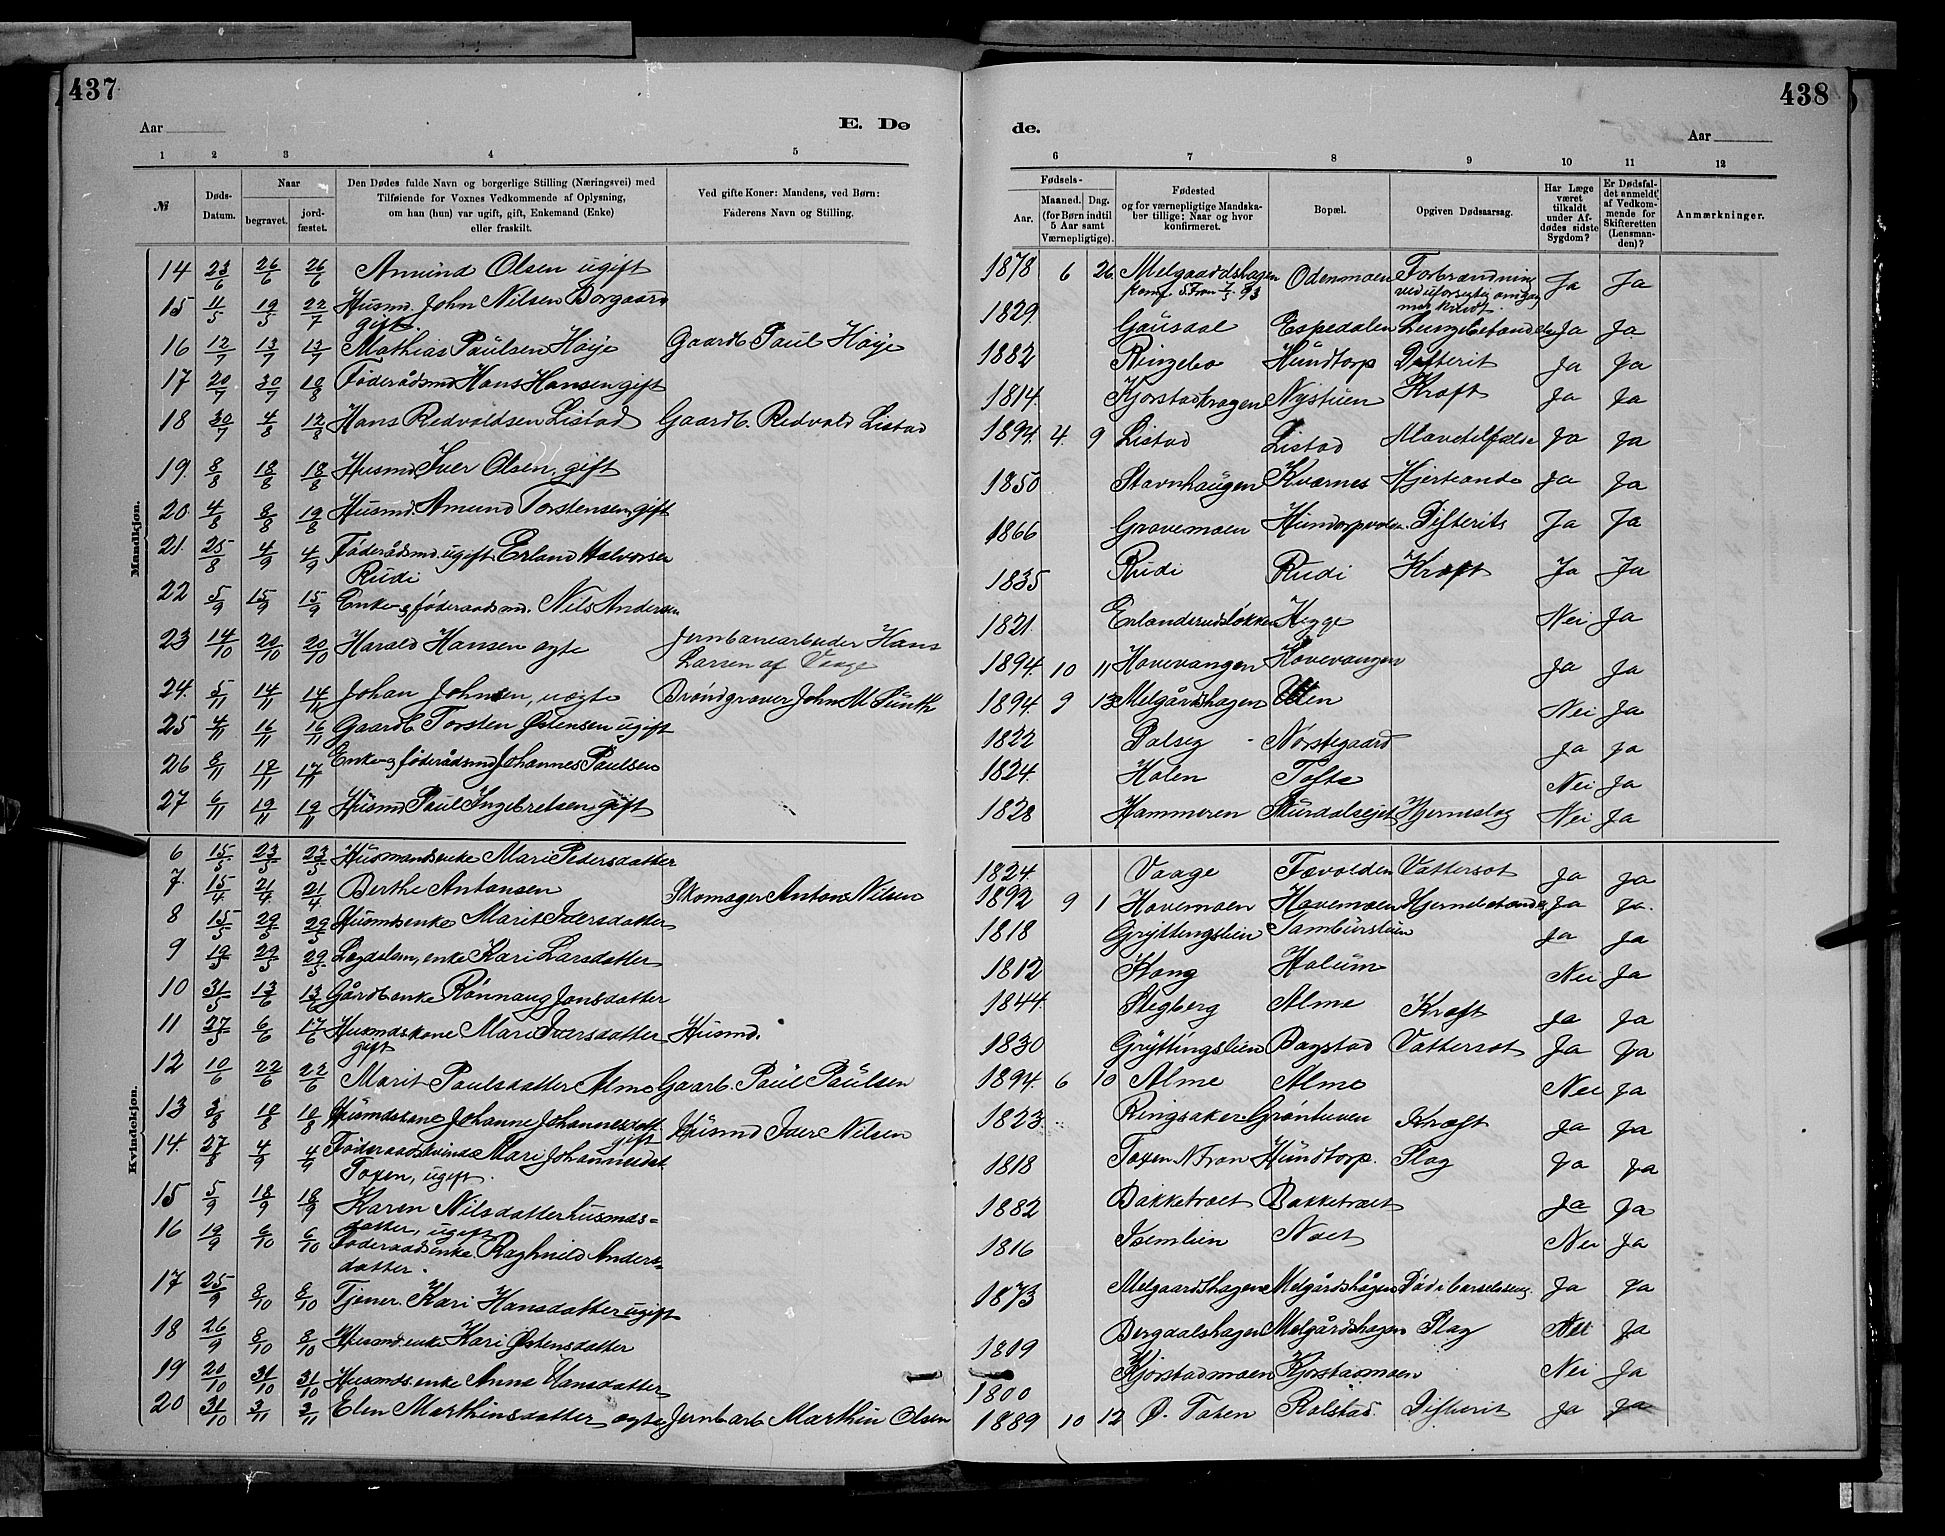 437
438
Aar
E. Dø
de.
Aar
1 2 3 4 5 6 7 8 9 10 11 12
№
Døds-Datum.
Naar
begravet.
jord-fæstet.
Den Dødes fulde Navn og borgerlige Stilling (Næringsvei) med
Tilføiende for Voxnes Vedkommende af Oplysning,
om han (hun) var ugift, gift, Enkemand (Enke)
eller fraskilt.
Ved gifte Koner: Mandens, ved Børn:
Faderens Navn og Stilling.
Fødsels-
Aar.
Maaned. Dag.
(for Børn indtil
5 Aar samt
Værnepligtige).
Fødested
og for værnepligtige Mandska-
ber tillige: Naar og hvor
konfirmeret.
Bopæl.
Opgiven Dødsaarsag.
Har Læge
været
tilkaldt
under Af-
dødes sidste
Sygdom?
Er Dødsfal-
det anmeldt,
af Vedkom-
mende for
Skifteretten
(Lensman-
den)?
Anmærkninger.
Mandkjøn.
14 23/6 26/6 26/6 Amund Olsen ugift 1878 6 26 Melgaardshagen Odenmoen Forbrænding Ja Ja
konf. S. Fron 93 ved uforsigtig omgang
med Krudt.
15 11/5 19/5 22/7 Husmd. John Nilsen Borgaard 1829. Gausdal Espedalen Lungebetændelse Ja Ja
gift.
16 12/7 13/7 13/7 Mathias Paulsen Høije Gaardb. Paul Høije 1882 Ringebo Hundtorp Difterit Ja Ja
17 20/7 30/7 10/8 Føderådsmd Hans Hansen gift 1814. Kjorstadhagen Nystuen Kræft Ja Ja
18 30/7 4/8 12/8 Hans Redvaldsen Listad Gaardb. Redvald Listad 1894. 4. 9 Listad Listad Ja Ja
19. 8/8 18/8 18/8 Husmd. Iver Olsen, gift 1850 Stavnhaugen Kværnes Hjerteonde Ja Ja
20. 4/8 8/8 19/8 Husmd. Amund Torstensen gift 1866 Grovemoen Difterits Ja Ja
21. 25/8 4/9 4/9 Føderådsmd. ugift Erland Halvorsen 1835 Rudi Rudi Kræft Ja Ja
Rudi
22 5/9 15/9 15/9 Enke- og føderaadsmd. Nils Andersen 1821. Erlandsrudsløkken Hegge Nei Ja
23 14/10 20/10 20/10 Harald Hansen ægte Jernbanearbeider Hans 1894. 10 11 Hovevangen Hovevangen Ja Ja
Larsen af Vaage
24. 5/11 14/11 14/11 Johan Johnsen, uægte Brøndgraver John M. Sunth 1894 9 13 Melgårdshagen Nei Ja
25 4/11 16/11 16/11 Gaardb. Torsten Østensen ugift 1822 Dalseg Norstegaard Ja Ja
26 8/11 17/11 17/11 Enke- og føderådsmd Johannes Paulsen 1824. Holen Tofte Nei Ja
27 6/11 19/11 19/11 Husmd Paul Ingebretsen, gift 1828 Hammeren Hjerneslag Nei Ja
Kvindekjøn.
6 15/5 23/5 23/5 Husmandsenke Mari Pedersdatter 1824. Vaage Tævolden Vattersot Ja Ja
7. 15/4 21/4 21/4 Berthe Antonsen Skomager Anton Nilsen 1892 9 1 Hovemoen Hovemoen Hjernebetænd. Ja Ja.
8 15/5 29/5 29/5 Husmdsenke Marit Iversdatter 1818 Gryttingslien Tamburstuen Ja Ja
9 19/5 29/5 29/5 Lægdslem, enke Kari Larsdatter 1812 Kong Holum Nei Ja
10 31/5 13/6 13/6 Gårdb.enke Rønnaug Jonsdatter 1844. Stegberg Alme Kræft Ja Ja
11 27/5 6/6 17/6 Husmdskone Mari Iversdatter Husmd. 1830 Gryttingslien Bagstad Vattersot Ja Ja
gift
12 10/6 22/6 22/6 Marit Paulsdatter Alme Gaarb. Paul Paulsen 1894. 6 10 Alme Alme Nei Ja
13 3/8 10/8 10/8 Husmdskone Johanne Johannesdatt. Husmd Iver Nilsen 1823. Ringsaker Grøntuven Kræft Ja Ja
gift
14. 27/8 4/9 4/9 Føderaadskvinde Mari Johannesdat. 1818 Toxen N. Fron Hundtorp. Slag Ja Ja
Toxen, ugift.
15 5/9 18/9 18/9 Karen Nilsdatter husmds= 1882 Bakketroet Bakketroet Ja Ja
datter, ugift
16 19/9 6/10 6/10 Føderaadsenke Raghnild Anders= 1816 Isemlien Noet Nei Ja
datter.
17 25/9 8/10 8/10 Tjener. Kari Hansdatter ugift 1873 Melgaardshagen Melgårdshågen Død i barselseng Ja Ja
18 26/9 8/10 8/10 Husmd.enke Kari Østensdatter 1819 Bergdalshagen Melgårdshagen Slag Nei Ja
19 20/10 31/10 31/10 Husmds.enke Anne Hansdatter 1800 Kjorstadmoen Kjorstadmoen Nei Ja
20 31/10 3/11 3/11 Elen Marthinsdatter ægte Jernbarb. Marthin Olsen 1889 10 12 Ø. Toten Rolstad. Difterit Ja Ja